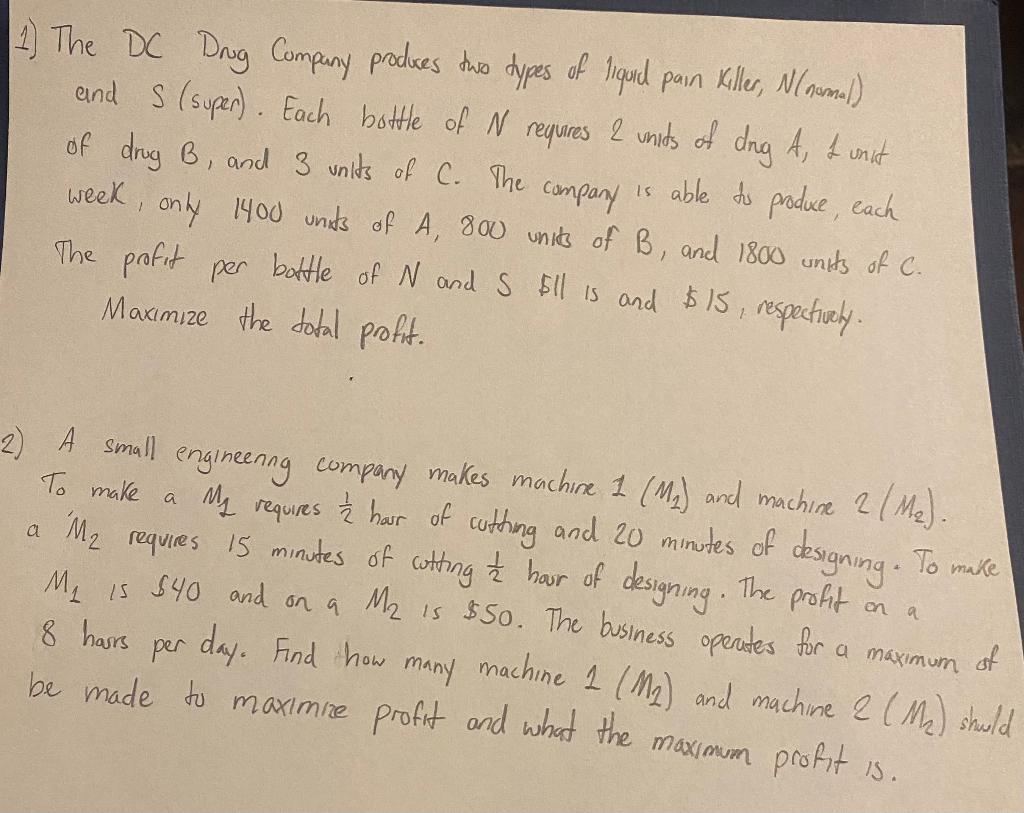 1) The DC Drug Company produces two types of liquid pain killer, N(normal)
and S (super). Each bottle of N requires 2 units of drug A, 1 unit
of drug B, and 3 units of C. The company is able to produce, each
week, only 1400 units of A, 800 units of B, and 1800 units of C.
The profit per bottle of N and S $11 is and $15, respectively.
Maximize the total profit.
2) A small engineering company makes machine 1 (M1) and machine 2 (M2).
To make a M1 requires 1/2 hour of cutting and 20 minutes of designing. To make
a M2 requires 15 minutes of cutting 1/2 hour of designing. The profit on a
M1 is $40 and on a M2 is $50. The business operates for a maximum of
8 hours per day. Find how many machine 1 (M1) and machine 2 (M2) should
be made to maximize profit and what the maximum profit is.